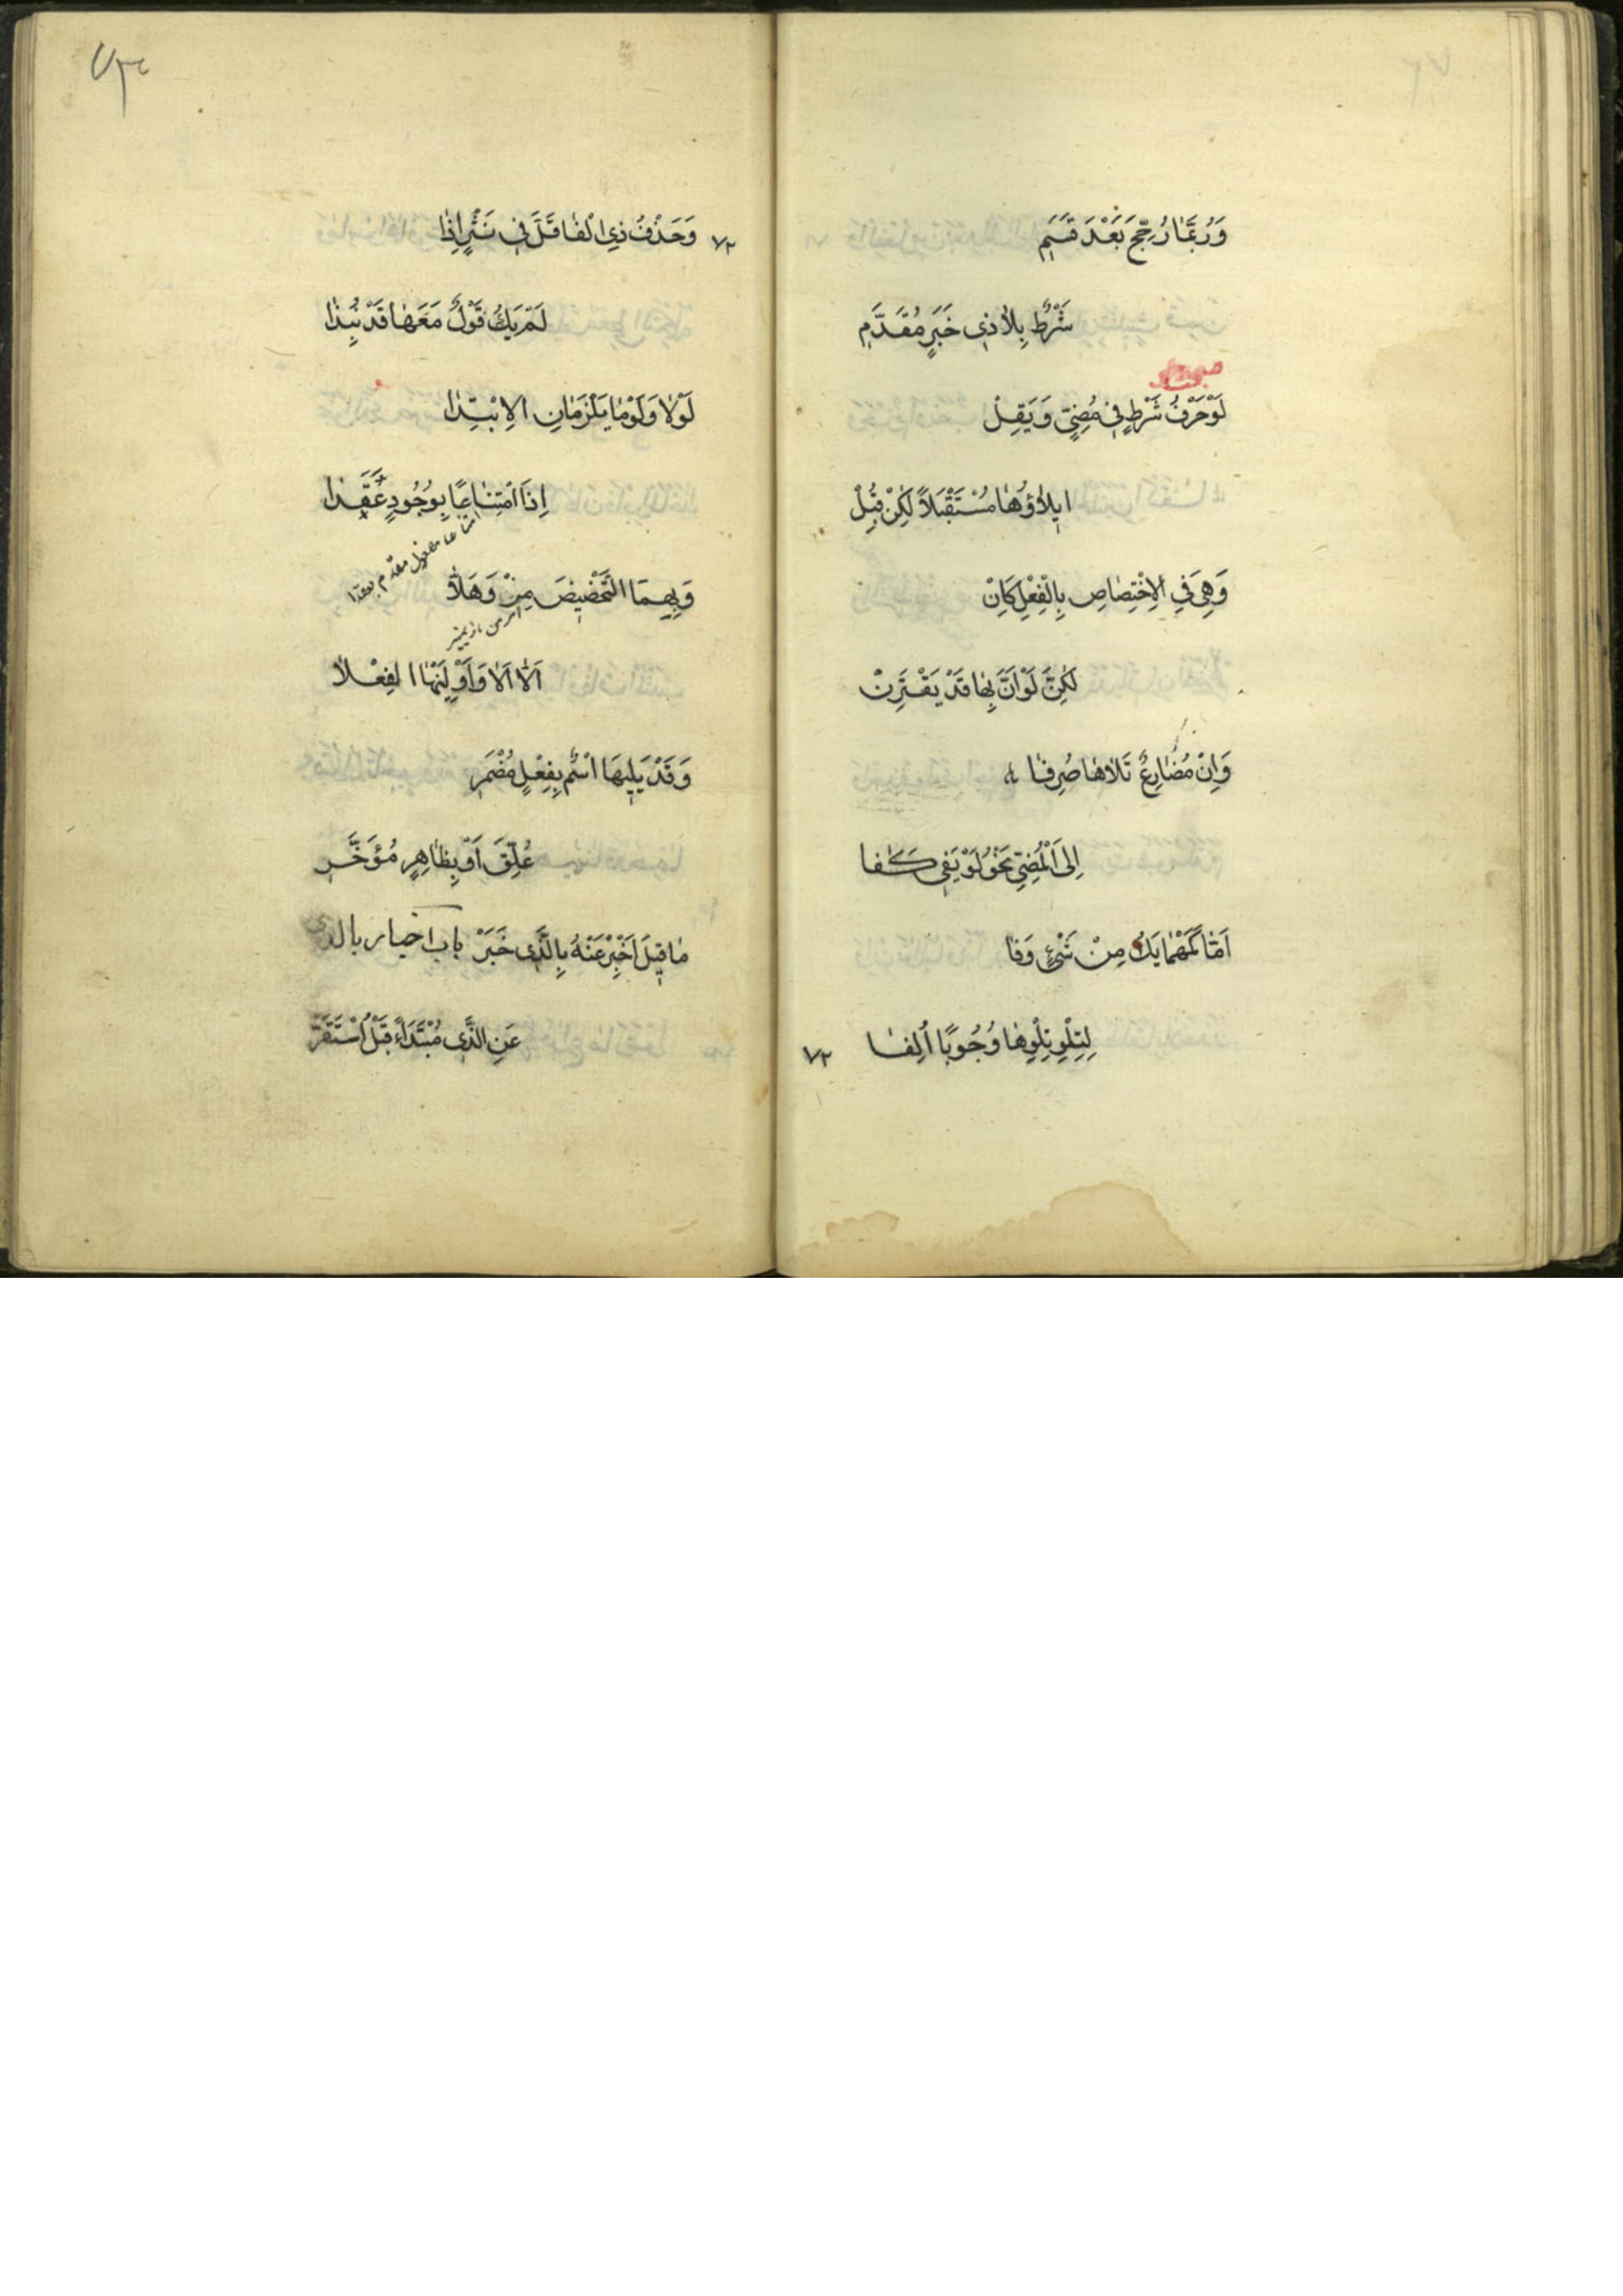 وَرُبَّمَا رُجِّحَ بَعْدَ قَسَمِ
شَرْطٌ بِلاٰ ذِى خَبَرٍ مُقَدَّمِ
لَوْ حَرْفُ شَرْطٍ فِى مُضِيٍّ وَيَقِلْ
ايلاٰؤُهٰا مُسْتَقْبَلاً لٰكِنْ قُبِلْ
وَهِىَ فِى الاِخْتِصٰاصِ بِالْفِعْلِ كَاِنْ
لٰكِنَّ لَوْ اَنَّ بِهٰا قَدْ يَقْتَرِنْ
وَاِنْ مُضٰارِعٌ تَلاٰهٰا صُرِفٰا
اِلَى الْمُضِيِّ نَحْوُ لَوْ يَفِى كَفٰا
اَمّٰا كَمَهْمٰا يَكُ مِنْ شَىْءٍ وَفٰا
لِتِلْوِ تِلْوِهٰا وُجُوبًا اُلِفٰا
٧٢
٧٣
٧٢ وَحَذْفُ ذِى الْفٰا قَلَّ فِى نَثْرٍ اِذٰا
لَمْ يَكُ قَوْلٌ مَعَهٰا قَدْ نُبِذٰا
لَوْلاٰ وَلَوْمٰا يَلْزَمٰانِ الاِبْتِدٰا
اِذَا امْتِنٰاعًا بِوُجُودٍ عَقَدٰا
امتناعا مفعول مقدم بعقدا
وَبِهِمَا التَّحْضِيضَ مِزْ وَهَلاّٰ
اَلاّٰ اَلاٰ وَاَوْلِيَنْهَا الفِعْلاٰ
وَقَدْ يَلِيهَا اسْمٌ بِفِعْلٍ مُضْمَرِ
عُلِّقَ اَوْ بِظٰاهِرٍ مُؤَخَّرِ
مٰا قِيلَ اَخْبِرْ عَنْهُ بِالَّذِى خَبَرْ باب اخبار بالذى
عَنِ الَّذِى مُبْتَدَاءً قَبْلُ اسْتَقَرّْ